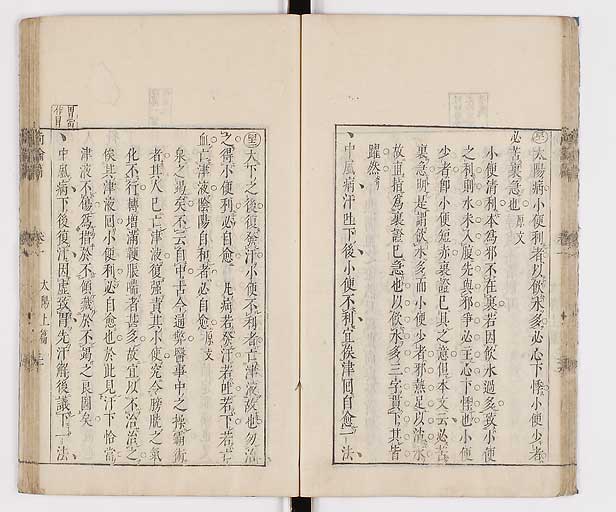 太陽病小便利者以飲水多必心下悸小便少者
必苦裏急也 原文
小便清利本爲邪不在裏若因飲水過多致小便
之利則水未入腹先與邪爭必主心下悸也小便
少者即小便短赤裏證已具之意但本文云必苦
裏急明是謂飲水多而小便少者邪熱足以消水
故直指爲裏證已急也以飲水多三字貫下其旨
躍然
中風病汗吐下後小便不利宜俟津回自愈一法
大下之後復發汗小便不利者亡津液故也勿治
之得小便利必自愈 凡病若發汗若吐若下若亡
血亡津液陰陽自和者必自愈 原文
泉之竭矣不云自中古今通弊醫事中之操霸術
者其人已亡津液復强責其小便究令膀胱之氣
化不行轉增滿鞕脹喘者甚多故宜以不治治之
俟其津液回小便利必自愈也於此見汗下恰當
津液不傷爲措於不傾藏於不竭之良圖矣
中風病下後復汗因虛致胃先汗解後議下一法
尚論篇 卷一 太陽上篇